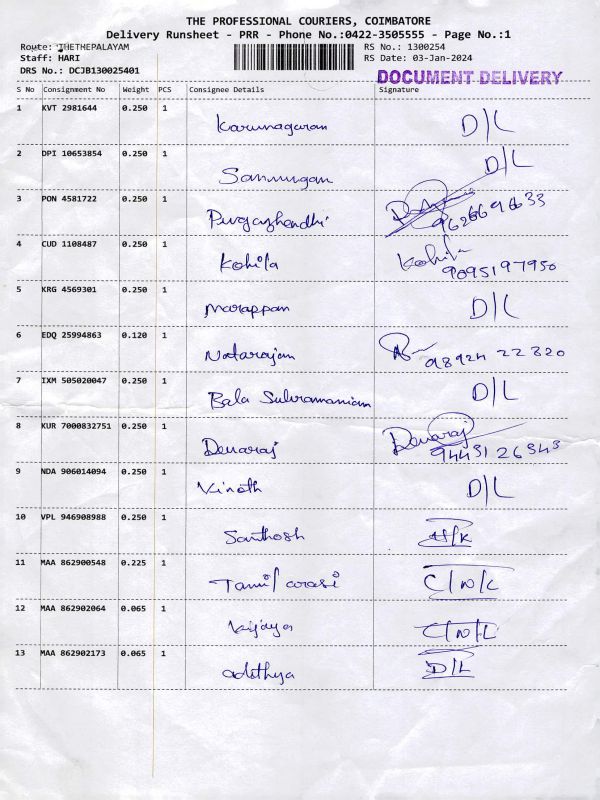 THE PROFESSIONAL COURIERS, COIMBATORE
Delivery Runsheet - PRR - Phone No.:0422-3505555 - Page No.:1
Route: THETHEPALAYAM RS No.: 1300254
Staff: HARI RS Date: 03-Jan-2024
DRS No.: DCJB130025401 DOCUMENT DELIVERY
S No Consignment No Weight PCS Consignee Details Signature
1 KVT 2981644 0.250 1 Karunagaran D/L
2 DPI 10653854 0.250 1 Sanmugam D/L
3 PON 4581722 0.250 1 Pugazhendhi 9626696633
4 CUD 1108487 0.250 1 Kohila Kohila
9095197950
5 KRG 4569301 0.250 1 Marappan D/L
6 EDQ 25994863 0.120 1 Natarajan
7 IXM 505020047 0.250 1 Bala Subramaniam D/L
8 KUR 7000832751 0.250 1 Devaraj Devaraj
9443126343
9 NDA 906014094 0.250 1 Vinoth D/L
10 VPL 946908988 0.250 1 Santhosh
11 MAA 862900548 0.225 1 Tamil arasi
12 MAA 862902064 0.065 1 Vijaya
13 MAA 862902173 0.065 1 adithya D/L